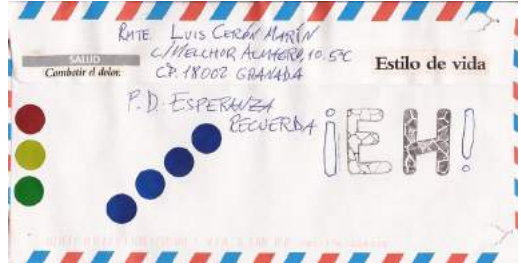 RMTE. LUIS CERÓN MARÍN
C/MELCHOR ALMAGRO, 10. 5ºC
CP. 18002 GRANADA
SALUD
Combatir el dolor.
Estilo de vida
P.D. ESPERANZA
RECUERDA
¡EH!